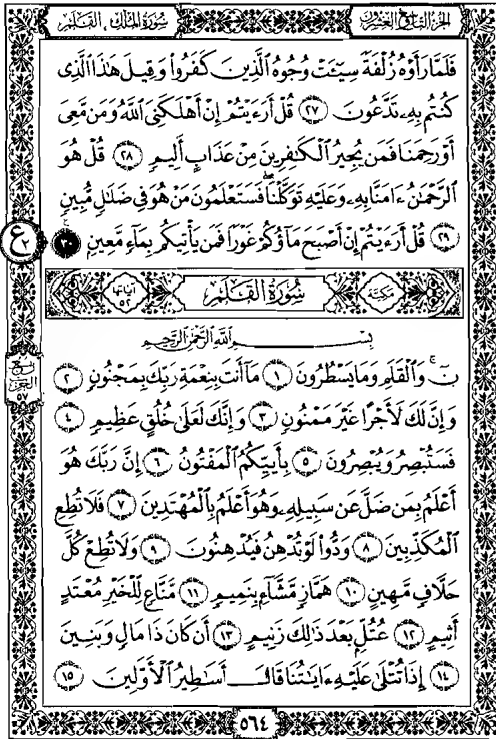 سُورَةُ المُلْكِ ، القَلَمِ
الجُزْءُ التَّاسِعُ وَالعِشْرُونَ
فَلَمَّا رَأَوْهُ زُلْفَةً سِيٓـَٔتْ وُجُوهُ ٱلَّذِينَ كَفَرُوا۟ وَقِيلَ هَٰذَا ٱلَّذِى
كُنتُم بِهِۦ تَدَّعُونَ ٢٧ قُلْ أَرَءَيْتُمْ إِنْ أَهْلَكَنِىَ ٱللَّهُ وَمَن مَّعِىَ
أَوْ رَحِمَنَا فَمَن يُجِيرُ ٱلْكَٰفِرِينَ مِنْ عَذَابٍ أَلِيمٍ ٢٨ قُلْ هُوَ
ٱلرَّحْمَٰنُ ءَامَنَّا بِهِۦ وَعَلَيْهِ تَوَكَّلْنَا ۖ فَسَتَعْلَمُونَ مَنْ هُوَ فِى ضَلَٰلٍ مُّبِينٍ
٢٩ قُلْ أَرَءَيْتُمْ إِنْ أَصْبَحَ مَآؤُكُمْ غَوْرًا فَمَن يَأْتِيكُم بِمَآءٍ مَّعِينٍۭ ٣٠
ع ٢
مَكِّيَّة سُورَةُ القَلَمِ آيَاتُهَا ٥٢
بِسْمِ ٱللَّهِ ٱلرَّحْمَٰنِ ٱلرَّحِيمِ
نٓ ۚ وَٱلْقَلَمِ وَمَا يَسْطُرُونَ ١ مَآ أَنتَ بِنِعْمَةِ رَبِّكَ بِمَجْنُونٍ ٢
ربع الحزب ٥٧
وَإِنَّ لَكَ لَأَجْرًا غَيْرَ مَمْنُونٍ ٣ وَإِنَّكَ لَعَلَىٰ خُلُقٍ عَظِيمٍ ٤
فَسَتُبْصِرُ وَيُبْصِرُونَ ٥ بِأَييِّكُمُ ٱلْمَفْتُونُ ٦ إِنَّ رَبَّكَ هُوَ
أَعْلَمُ بِمَن ضَلَّ عَن سَبِيلِهِۦ وَهُوَ أَعْلَمُ بِٱلْمُهْتَدِينَ ٧ فَلَا تُطِعِ
ٱلْمُكَذِّبِينَ ٨ وَدُّوا۟ لَوْ تُدْهِنُ فَيُدْهِنُونَ ٩ وَلَا تُطِعْ كُلَّ
حَلَّافٍ مَّهِينٍ ١٠ هَمَّازٍ مَّشَّآءٍۭ بِنَمِيمٍ ١١ مَّنَّاعٍ لِّلْخَيْرِ مُعْتَدٍ
أَثِيمٍ ١٢ عُتُلٍّۭ بَعْدَ ذَٰلِكَ زَنِيمٍ ١٣ أَن كَانَ ذَا مَالٍ وَبَنِينَ
١٤ إِذَا تُتْلَىٰ عَلَيْهِ ءَايَٰتُنَا قَالَ أَسَٰطِيرُ ٱلْأَوَّلِينَ ١٥
٥٦٤